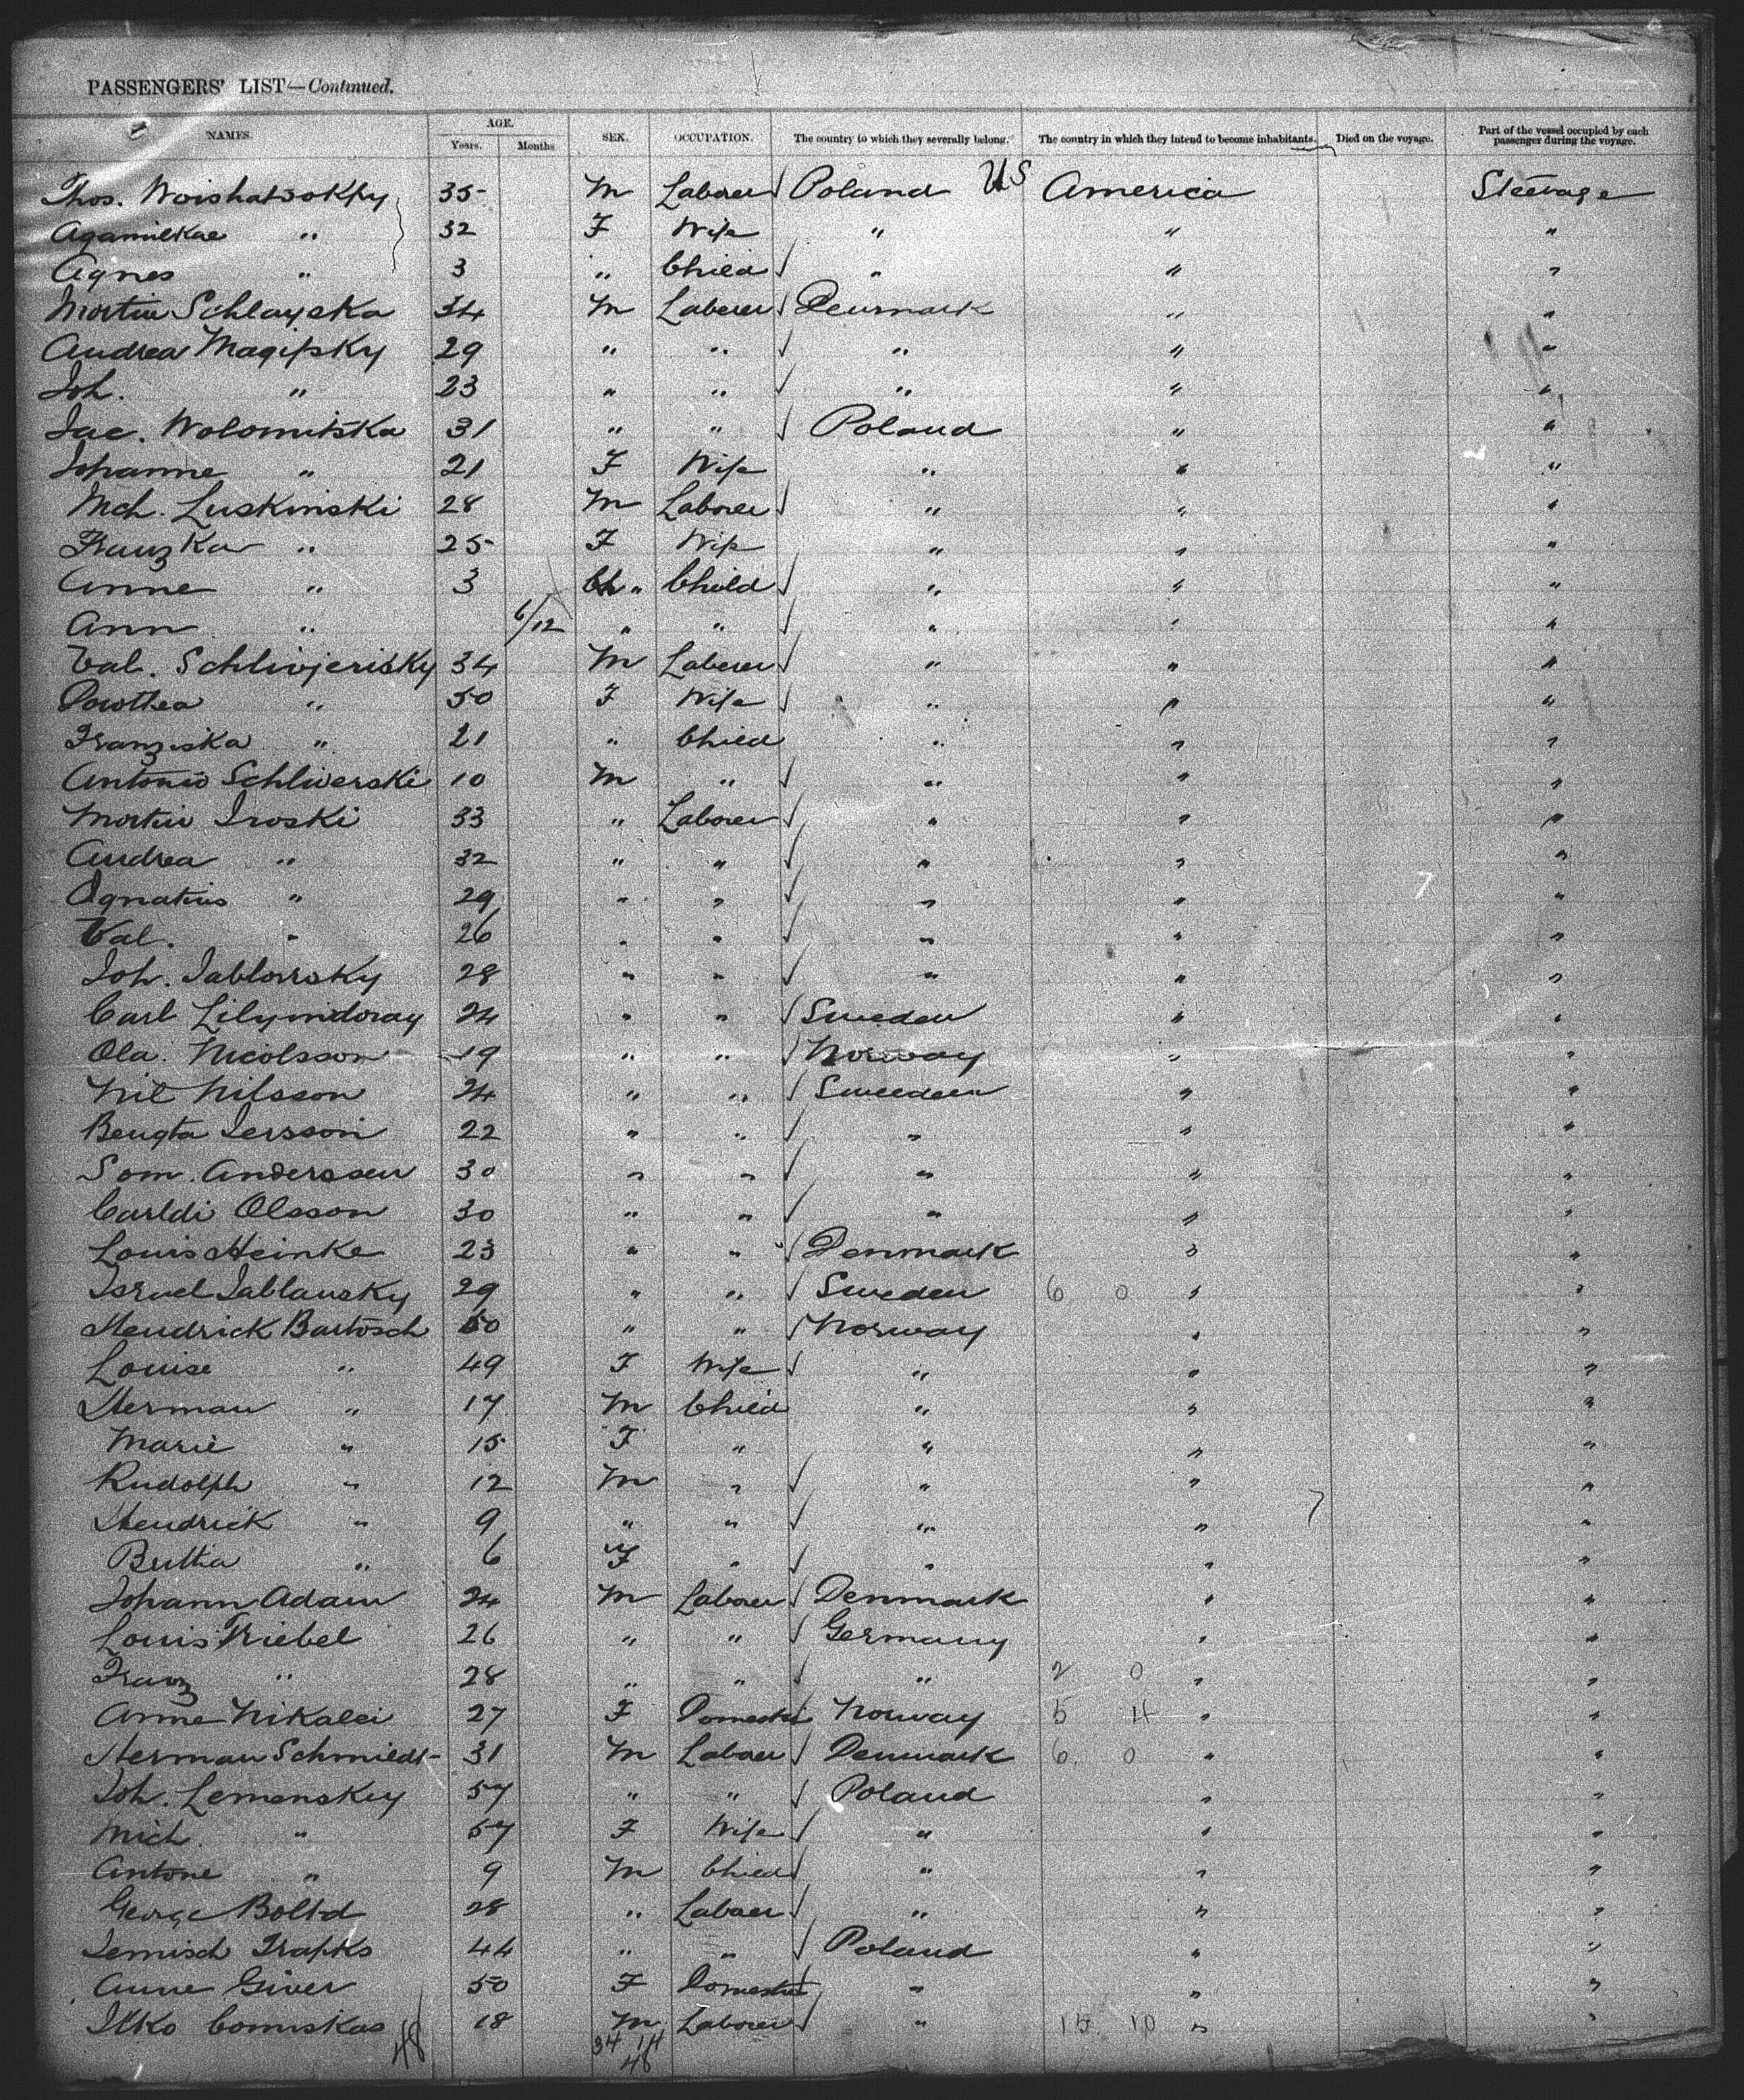 PASSENGERS' LIST—Continued.
NAMES. AGE. Years. Months SEX. OCCUPATION. The country to which they severally belong. The country in which they intend to become inhabitants. Died on the voyage. Part of the vessel occupied by each passenger during the voyage.
Thos. Woishatsokky 35 M Laborer Poland US America Steerage
Agamilkae " 32 F Wife " " "
Agnes " 3 " Child " " "
Martin Schlayska 34 M Laborer Denmark " "
Andrea Magifsky 29 " " " " "
Joh. " 23 " " " " "
Jac. Wolomitska 31 " " Poland " "
Johanne " 21 F Wife " " "
Mch. Luskinski 28 M Laborer " " "
Franzka " 25 F Wife " " "
Anne " 3 Ch " Child " " "
Ann " 6/12 " " " " "
Val. Schlivjerisky 34 M Laborer " " "
Dorothea " 50 F Wife " " "
Franziska " 21 " Child " " "
Antonio Schlwerski 10 M " " " "
Martin Iroski 33 " Laborer " " "
Andrea " 32 " " " " "
Ignatius " 29 " " " " "
Val. " 26 " " " " "
Joh. Jablovrsky 28 " " " " "
Carl Lilymdoray 24 " " Sweden " "
Ola. Nicolsson 19 " " Norway " "
Nil Nilsson 24 " " Sweeden " "
Bengta Jersson 22 " " " " "
Som. Anderssen 30 " " " " "
Carldi Olsson 30 " " " " "
Louis Heinke 23 " " Denmark " "
Israel Jablansky 29 " " Sweden 6 0 " "
Hendrick Bartosch 50 " " Norway " "
Louise " 49 F Wife " " "
Herman " 17 M Child " " "
Marie " 15 F " " " "
Rudolph " 12 M " " " "
Hendrick " 9 " " " " "
Bertha " 6 F " " " "
Johann Adam 24 M Laborer Denmark " "
Louis Triebel 26 " " Germany " "
Franz " 28 " " " 2 0 " "
Anne Nikalei 27 F Domestic Norway 5 11 " "
Herman Schmiedt 31 M Laborer Denmark 6 0 " "
Joh. Lemenskey 57 " " Poland " "
Mich. " 57 F Wife " " "
Antone " 9 M Child " " "
George Boltd 28 " Laborer " " "
Jemisch Trapks 44 " " Poland " "
Anne Giver 50 F Domestic " " "
Ilko Comiskas 18 M Laborer " 15 10 " "
48 34 14
48